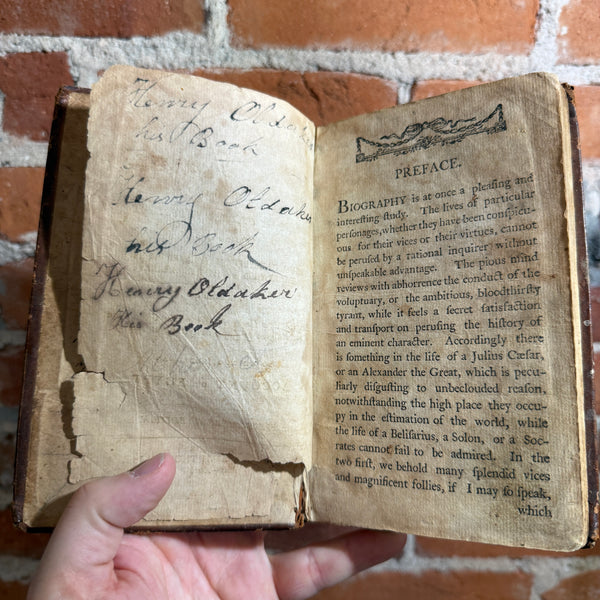 Henry Oldaker
his Book
Henry Oldaker
his Book
Henry Oldaker
his Book
PREFACE.
BIOGRAPHY is at once a pleaſing and
intereſting ſtudy. The lives of particular
perſonages, whether they have been conſpicu-
ous for their vices or their virtues, cannot
be peruſed by a rational inquirer without
unſpeakable advantage. The pious mind
reviews with abhorrence the conduct of the
voluptuary, or the ambitious, bloodthirſty
tyrant, while it feels a ſecret ſatisfaction
and tranſport on peruſing the hiſtory of
an eminent character. Accordingly there
is ſomething in the life of a Julius Cæſar,
or an Alexander the Great, which is pecu-
liarly diſguſting to unbeclouded reaſon,
notwithſtanding the high place they occu-
py in the eſtimation of the world, while
the life of a Beliſarius, a Solon, or a Soc-
rates cannot fail to be admired. In the
two firſt, we behold many ſplendid vices
and magnificent follies, if I may ſo ſpeak,
which